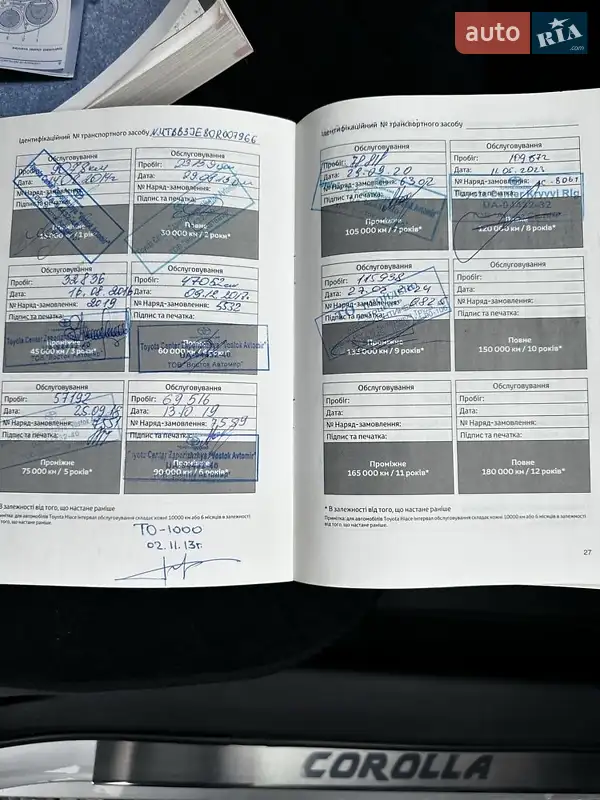 auto RIA .com
Ідентифікаційний № транспортного засобу
Обслуговування
Пробіг:
Дата:
№ Наряд-замовлення:
Підпис та печатка:
Проміжне
15 000 км / 1 рік*
Обслуговування
Пробіг:
Дата:
№ Наряд-замовлення:
Підпис та печатка:
Повне
30 000 км / 2 роки*
Обслуговування
Пробіг: 32836
Дата: 16.08.2016
№ Наряд-замовлення: 2019
Підпис та печатка:
Проміжне
45 000 км / 3 роки*
Обслуговування
Пробіг: 47052 км
Дата:
№ Наряд-замовлення: 5532
Підпис та печатка:
Toyota Center Zaporizhzhya "Vostok Avtomir"
60 000 км /
ТОВ "Восток Автомир"
Обслуговування
Пробіг: 57192
Дата: 25.09.18
№ Наряд-замовлення: 7551
Підпис та печатка:
Проміжне
75 000 км / 5 років*
Обслуговування
Пробіг: 69516
Дата: 13.10.19
№ Наряд-замовлення: 7559
Підпис та печатка:
Toyota Center Zaporizhzhya "Vostok Avtomir"
90 000 км / 6 років*
В залежності від того, що настане раніше
Примітка: для автомобілів Toyota Hiace інтервал обслуговування складає кожні 10000 км або 6 місяців в залежності
від того, що настане раніше.
ТО-1000
02.11.13г.
Ідентифікаційний № транспортного засобу
Обслуговування
Пробіг:
Дата: 29.09.20
№ Наряд-замовлення: 6302
Підпис та печатка:
Проміжне
105 000 км / 7 років*
Обслуговування
Пробіг: 109672
Дата: 11.05.2023
№ Наряд-замовлення:
Підпис та печатка: Kryvyi Rig
Повне
120 000 км / 8 років*
Обслуговування
Пробіг: 115938
Дата:
№ Наряд-замовлення:
Підпис та печатка:
Проміжне
135 000 км / 9 років*
Обслуговування
Пробіг:
Дата:
№ Наряд-замовлення:
Підпис та печатка:
Повне
150 000 км / 10 років*
Обслуговування
Пробіг:
Дата:
№ Наряд-замовлення:
Підпис та печатка:
Проміжне
165 000 км / 11 років*
Обслуговування
Пробіг:
Дата:
№ Наряд-замовлення:
Підпис та печатка:
Повне
180 000 км / 12 років*
* В залежності від того, що настане раніше
Примітка: для автомобілів Toyota Hiace інтервал обслуговування складає кожні 10000 км або 6 місяців в залежності
від того, що настане раніше.
27
COROLLA